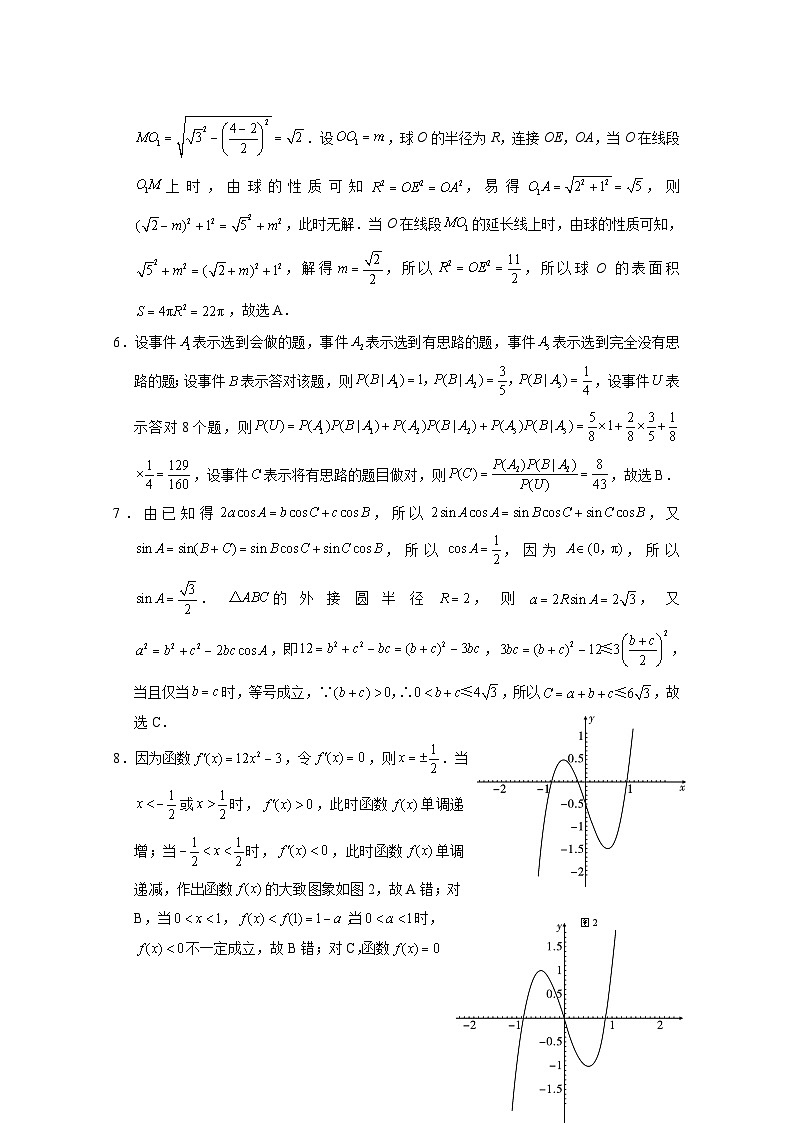 MO₁ = √(√3² − ((4−2)/2)²) = √2．设OO₁ = m，球O的半径为R，连接OE，OA，当O在线段
O₁M上时，由球的性质可知R² = OE² = OA²，易得O₁A = √(2² + 1²) = √5，则
(√2 − m)² + 1² = √5² + m²，此时无解．当O在线段MO₁的延长线上时，由球的性质可知，
√5² + m² = (√2 + m)² + 1²，解得m = √2/2，所以R² = OE² = 11/2，所以球O的表面积
S = 4πR² = 22π，故选A．
6．设事件A₁表示选到会做的题，事件A₂表示选到有思路的题，事件A₃表示选到完全没有思
路的题；设事件B表示答对该题，则P(B|A₁) = 1，P(B|A₂) = 3/5，P(B|A₃) = 1/4，设事件U表
示答对8个题，则P(U) = P(A₁)P(B|A₁) + P(A₂)P(B|A₂) + P(A₃)P(B|A₃) = 5/8×1 + 2/8×3/5 + 1/8
×1/4 = 129/160，设事件C表示将有思路的题目做对，则P(C) = P(A₂)P(B|A₂)/P(U) = 8/43，故选B．
7．由已知得2acosA = bcosC + ccosB，所以2sinAcosA = sinBcosC + sinCcosB，又
sinA = sin(B + C) = sinBcosC + sinCcosB，所以cosA = 1/2，因为A∈(0，π)，所以
sinA = √3/2．△ABC的外接圆半径R = 2，则a = 2RsinA = 2√3，又
a² = b² + c² − 2bccosA，即12 = b² + c² − bc = (b + c)² − 3bc，3bc = (b + c)² − 12≤3((b + c)/2)²，
当且仅当b = c时，等号成立，∵(b + c) > 0，∴0 < b + c≤4√3，所以C = a + b + c≤6√3，故
选C．
8．因为函数f′(x) = 12x² − 3，令f′(x) = 0，则x = ±1/2．当
x < −1/2或x > 1/2时，f′(x) > 0，此时函数f(x)单调递
增；当−1/2 < x < 1/2时，f′(x) < 0，此时函数f(x)单调
递减，作出函数f(x)的大致图象如图2，故A错；对
B，当0 < x < 1，f(x) < f(1) = 1 − a 当0 < a < 1时，
f(x) < 0不一定成立，故B错；对C，函数f(x) = 0
y
1
0.5
−2 −1 1 x
−0.5
−1
−1.5
−2
图2
y
1.5
1
0.5
−2 −1 1 2
−0.5
−1
−1.5